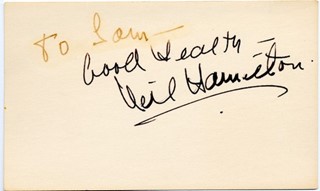 To Sam —
Good Health —
Neil Hamilton.